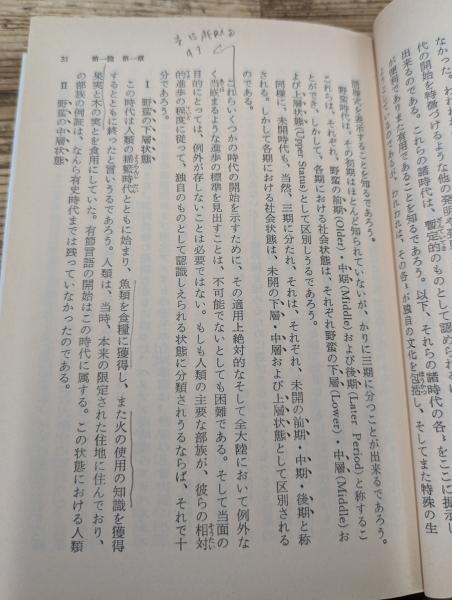 なかった。
代の開始を特徴づけるような他の発明や発
出来るのである。これらの諸時代は、暫定的のものとして認め
が便利でありまた有用であることを知るであろう。以下、それらの諸時代の各〻をここに提示し
われわれは、その各〻が独自の文化を包括し、そしてまた特殊の生
活様式を表示することを知るであろう。
野蛮時代は、その初期はほとんど知られていないが、かりに三期に分つことが出来るであろう。
これらは、それぞれ、野蛮の前期(Older)・中期(Middle)および後期(Later Period)と称するこ
とができ、しかして、各期における社会状態は、それぞれ野蛮の下層(Lower)・中層(Middle)お
よび上層状態(Upper Status)として区別しうるであろう。
同様に、未開時代も、当然、三期に分たれ、それは、それぞれ、未開の前期・中期・後期と称
される。しかして各期における社会状態は、未開の下層・中層および上層状態として区別される
のである。
これらいくつかの時代の開始を示すために、その適用上絶対的なそして全大陸において例外な
く当嵌まるような進歩の標準を見出すことは、不可能でないとしても困難である。そして当面の
目的にとっては、例外が存しないことは必要ではない。もしも人類の主要な部族が、彼らの相対
的進歩の程度に従って、独自のものとして認識しえられる状態に分類されうるならば、それで十
分であろう。
Ⅰ 野蛮の下層状態
この時代は人類の揺籃時代とともに始まり、魚類を食糧に獲得し、また火の使用の知識を獲得
するとともに終ったと言いうるであろう。人類は、当時、本来の限定された住地に住んでおり、
果実と木の実とを食用にしていた。有節言語の開始はこの時代に属する。この状態における人類
の部族の例証は、なんら有史時代までは残っていなかったのである。
Ⅱ 野蛮の中層状態
31 第一篇 第一章